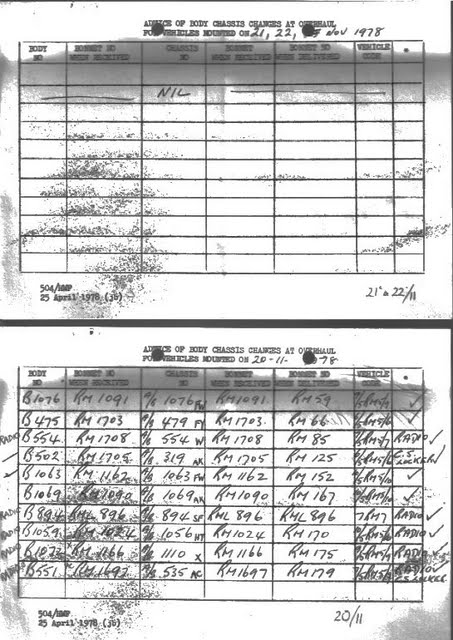 ADVICE OF BODY CHASSIS CHANGES AT OVERHAUL
FOR VEHICLES MOUNTED ON 21, 22, NOV 1978
BODY NO BONNET NO WHEN RECEIVED CHASSIS NO BONNET WHEN RECEIVED BONNET NO WHEN DELIVERED VEHICLE CODE *
NIL
504/HMP
25 April 1978 (jb)
21 & 22/11
ADVICE OF BODY CHASSIS CHANGES AT OVERHAUL
FOR VEHICLES MOUNTED ON 20-11-78
BODY NO BONNET NO WHEN RECEIVED CHASSIS NO BONNET WHEN RECEIVED BONNET NO WHEN DELIVERED VEHICLE CODE
B1076 RM 1091 1076 FW RM1091 RM 59 ✓
B475 RM 1703 479 FY RM1703 RM 66 ✓
RADIO B554 RM 1708 554 W RM 1708 RM 85 RADIO ✓
B502 RM 1705 319 AK RM 1705 RM 125 ✓
✓ B1063 RM 1162 1063 FW RM 1162 RM 152 ✓
B1069 RM 1090 1069 AK RM 1090 RM 167 ✓
RADIO B894 RML 896 894 SF RML 896 RML 896 7RM7 RADIO ✓
RADIO B1059 RM 1024 1056 HT RM1024 RM 170 RADIO ✓
RADIO RM 1166 1110 X RM 1166 RM 175 RADIO ✓
RADIO B551 RM 1697 535 AC RM1697 RM 179 RADIO ✓
504/HMP
25 April 1978 (jb)
20/11